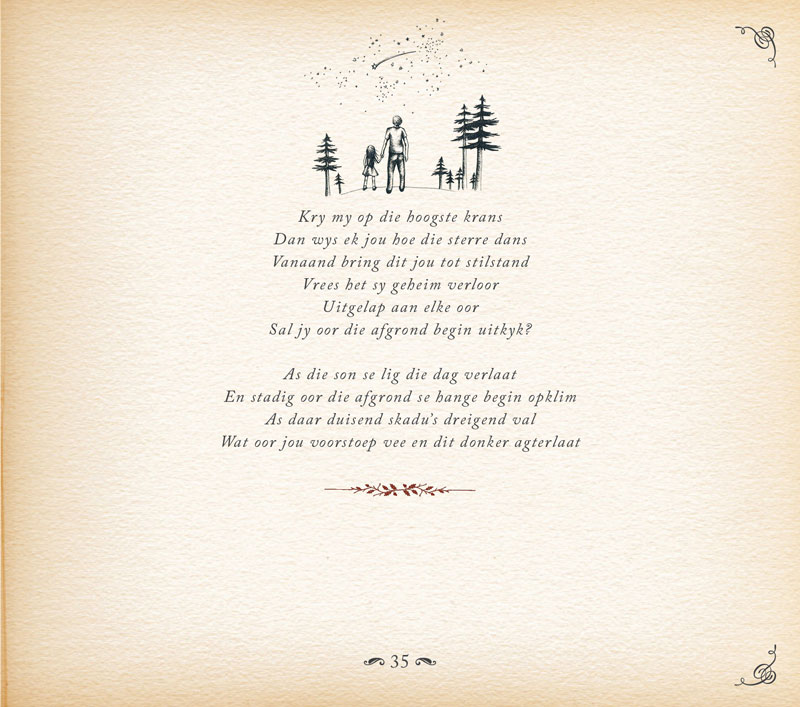 Kry my op die hoogste krans
Dan wys ek jou hoe die sterre dans
Vanaand bring dit jou tot stilstand
Vrees het sy geheim verloor
Uitgelap aan elke oor
Sal jy oor die afgrond begin uitkyk?
As die son se lig die dag verlaat
En stadig oor die afgrond se hange begin opklim
As daar duisend skadu's dreigend val
Wat oor jou voorstoep vee en dit donker agterlaat
35